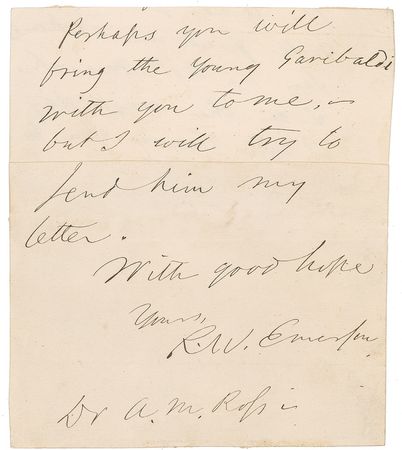 Perhaps you will
bring the young Garibaldi
with you to me, –
but I will try to
send him my
letter.
With good hope
Yours,
R.W. Emerson
Dr A. M. Ross –